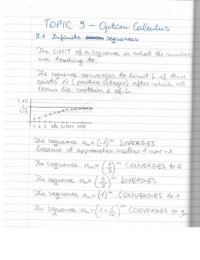 TOPIC 9 - Option: Calculus
9.1 Infinite sequences
The LIMIT of a sequence is what the numbers
are tending to.
The sequence converges to limit L if there
exists a (positive integer) after which all
terms lie within ε of L.
The sequence aₙ = (-1)ⁿ DIVERGES
because it approaches neither 1 nor -1
The sequence aₙ = (1/2)ⁿ CONVERGES to 0
The sequence DIVERGES
The sequence aₙ = (1)ⁿ CONVERGES to 1
The sequence aₙ = (1 + 1/n)ⁿ CONVERGES to e